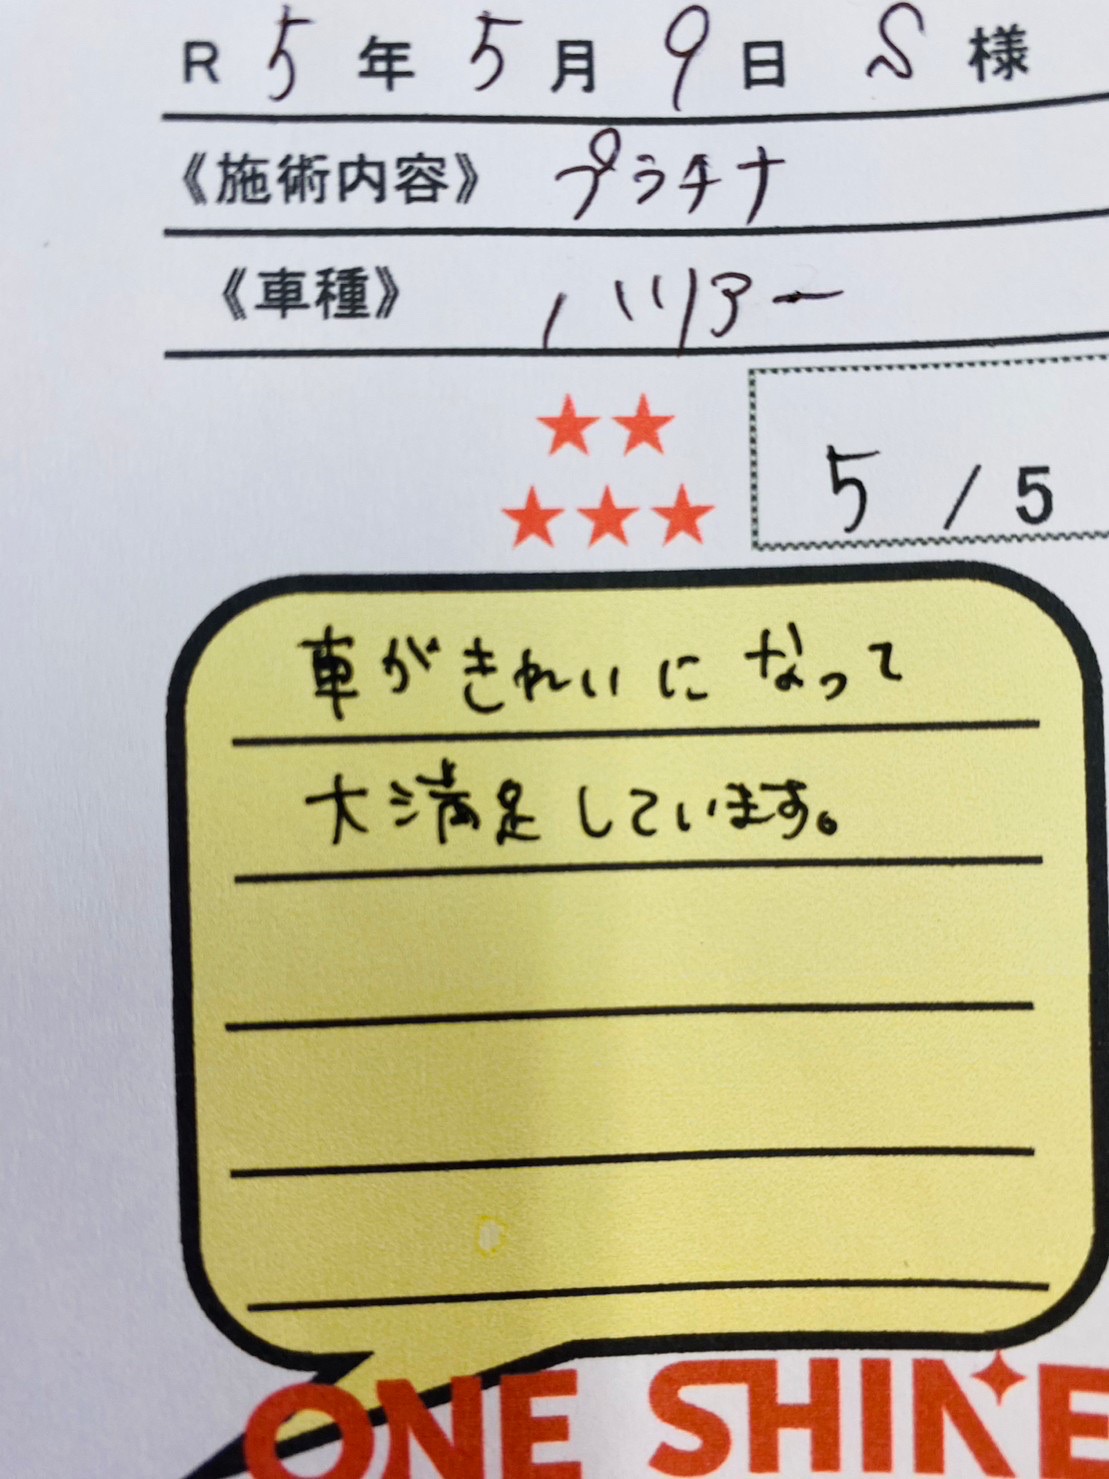 R 5 年 5 月 9 日 S 様
《施術内容》 プラチナ
《車種》 ハリアー
★★
★★★
5 / 5
車がきれいになって
大満足しています。
ONE SHINE